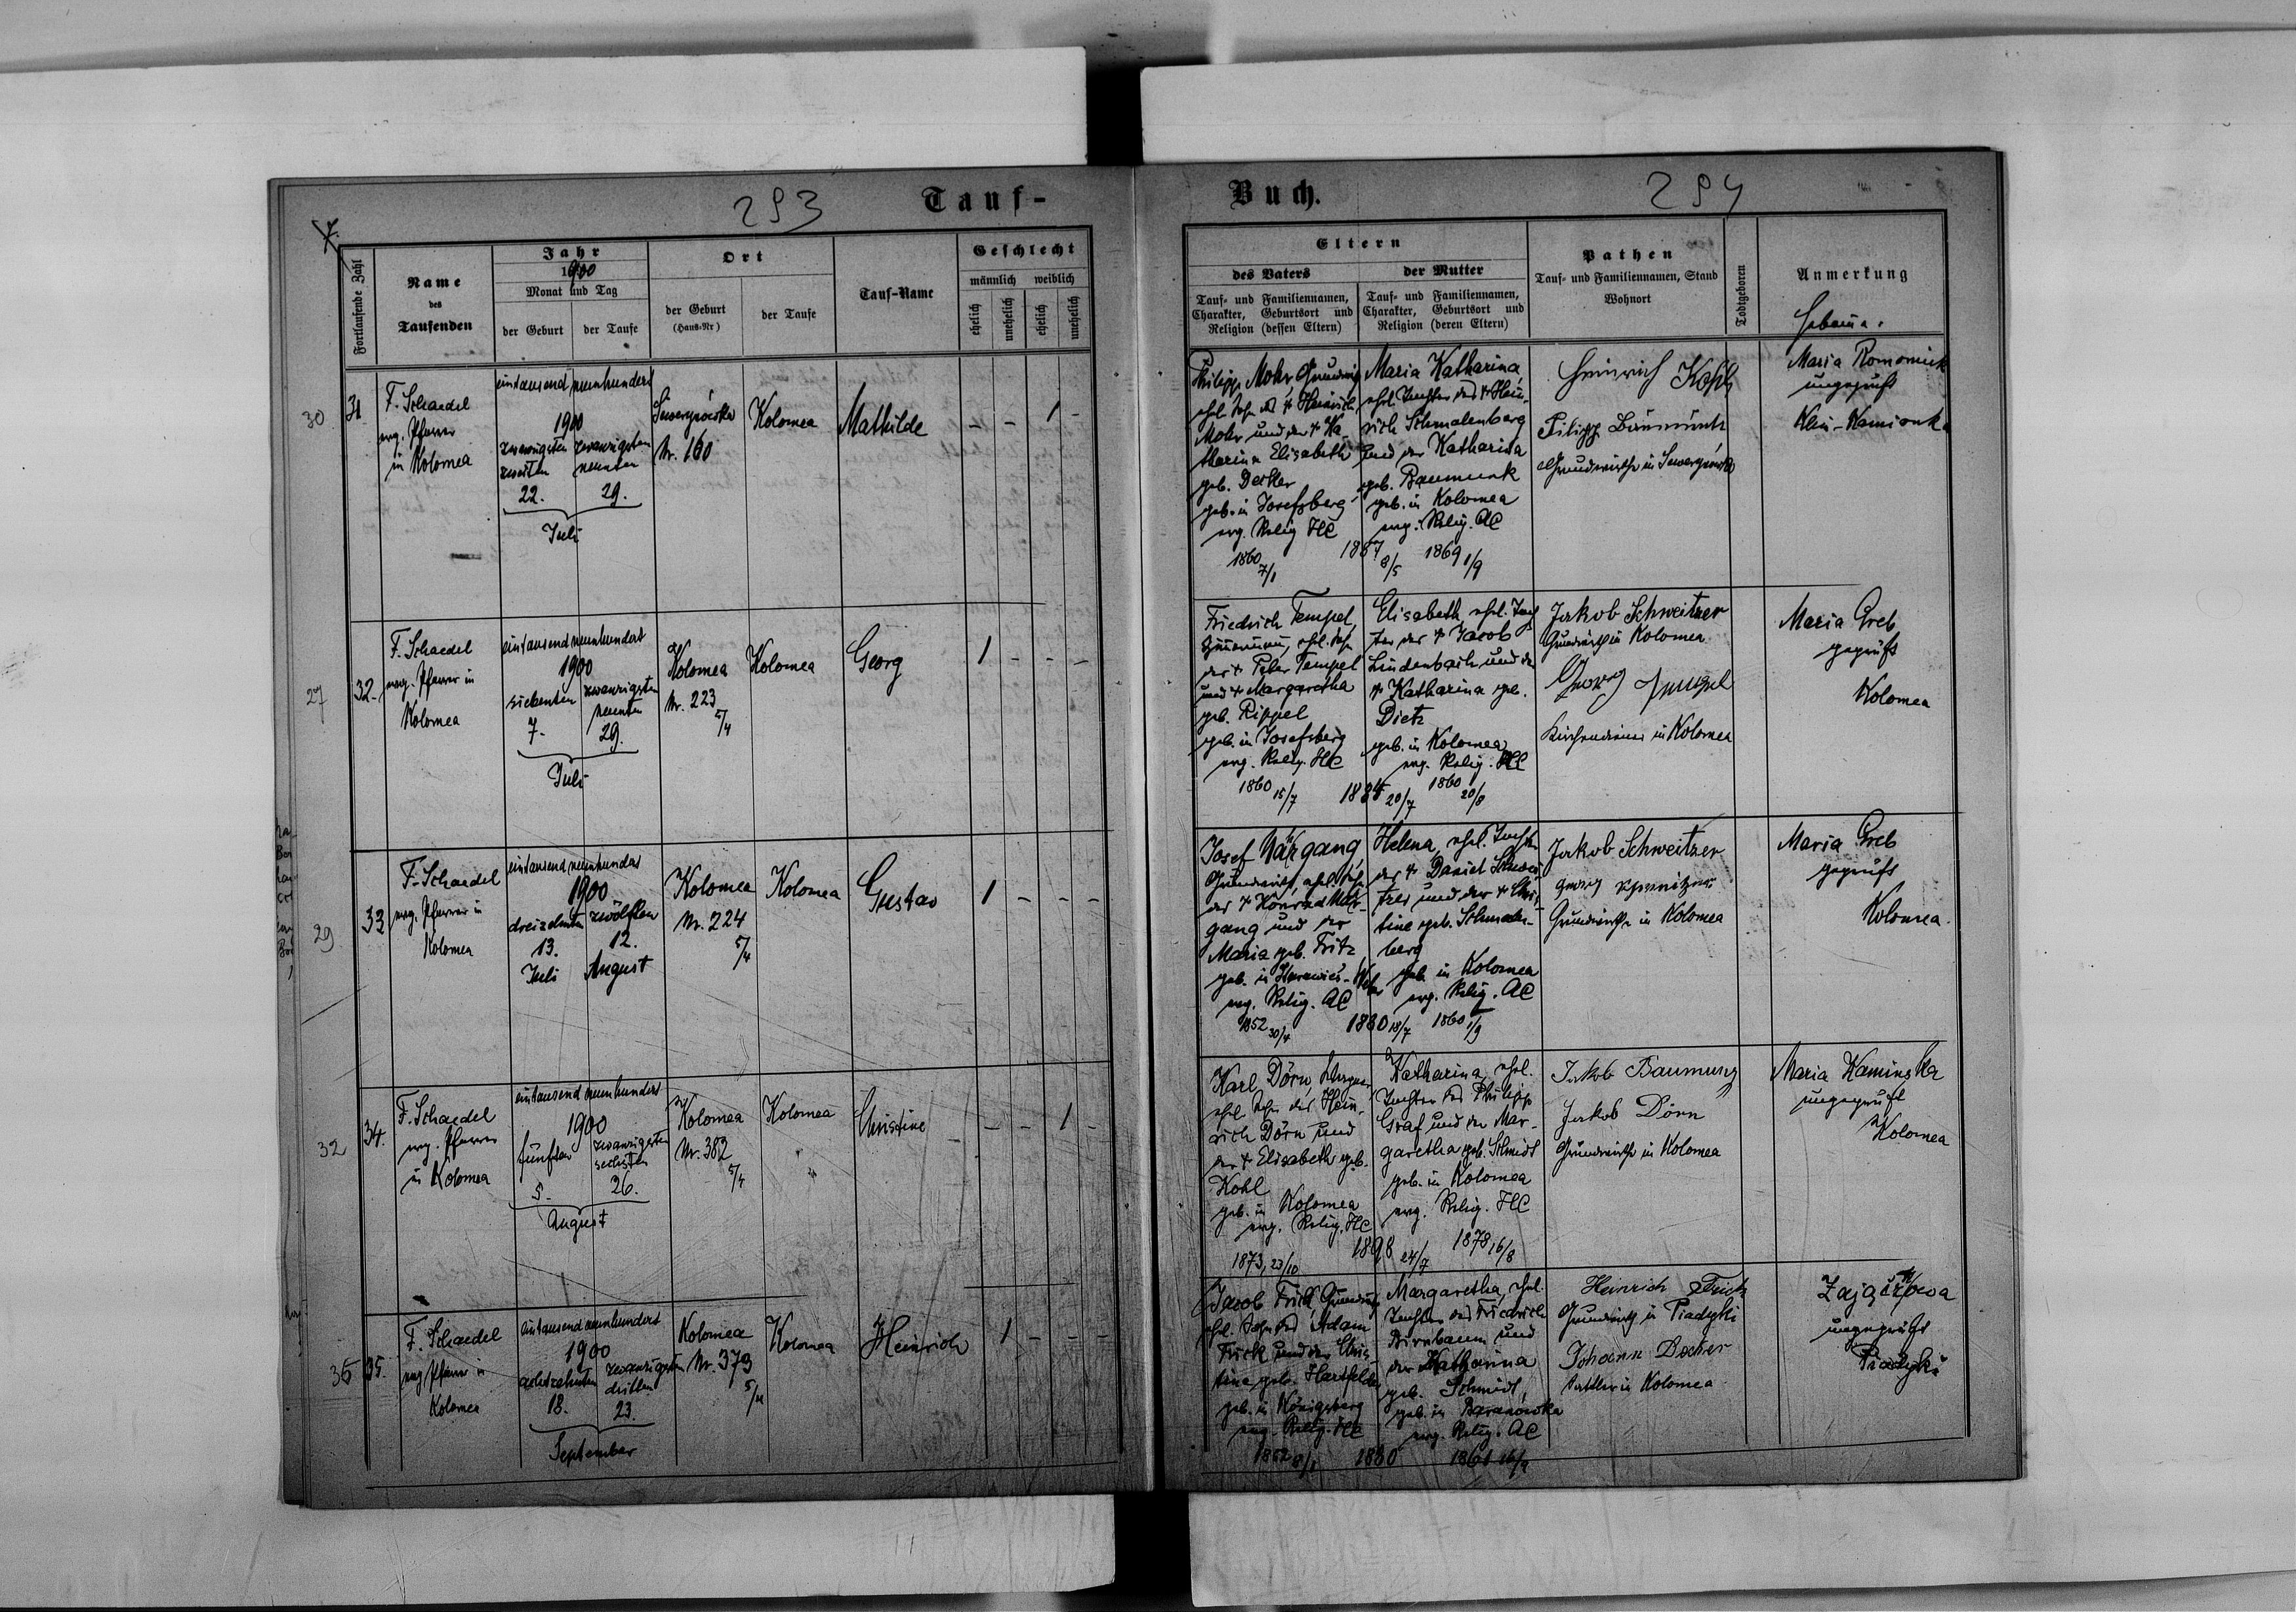 293
Tauf-
Fortlaufende Zahl
Name
des
Taufenden
Jahr
1900
Monat und Tag
der Geburt
der Taufe
Ort
der Geburt
(Haus-Nr)
der Taufe
Tauf-Name
Geschlecht
männlich weiblich
ehelich
unehelich
ehelich
unehelich
30
31
F. Schaedel
evg. Pfarrer
in Kolomea
eintausend neunhundert
1900
zwanzigsten zwanzigsten
zweiten neunten
22. 29.
Juli
Sewerynówka
Nr. 160
Kolomea
Mathilde
- - 1 -
27
32.
F. Schaedel
evg. Pfarrer in
Kolomea
eintausend neunhundert
1900
siebenten zwanzigsten
neunten
7. 29.
Juli
Kolomea
Nr. 223
5/4
Kolomea
Georg
1 - - -
29
33
F. Schaedel
evg. Pfarrer in
Kolomea
eintausend neunhundert
1900
dreizehnten zwölften
13. 12.
Juli August
Kolomea
Nr. 224
5/4
Kolomea
Gustav
1 - - -
32
34.
F. Schaedel
evg. Pfarrer
in Kolomea
eintausend neunhundert
1900
fünften zwanzigsten
sechsten
5. 26.
August
Kolomea
Nr. 382
5/4
Kolomea
Christine
- - 1 -
35
35.
F. Schaedel
evg. Pfarrer in
Kolomea
eintausend neunhundert
1900
achtzehnten zwanzigsten
dritten
18. 23.
September
Kolomea
Nr. 373
5/4
Kolomea
Heinrich
1 - - -
Buch.
294
Eltern
des Vaters
Tauf- und Familiennamen,
Charakter, Geburtsort und
Religion (dessen Eltern)
der Mutter
Tauf- und Familiennamen,
Charakter, Geburtsort und
Religion (deren Eltern)
Pathen
Tauf- und Familiennamen, Stand
Wohnort
Todtgeboren
Anmerkung
Philipp Mohr, Grundwirth
ehl. Sohn des + Heinrich
Mohr und der + Ka-
tharina Elisabeth
geb. Decker
geb. in Josefsberg
evg. Relig HC
1860 7/1
1887 8/5
Maria Katharina
ehl. Tochter des + Hein-
rich Schmalenberg
und der Katharina
geb. Baumunk
geb. in Kolomea
evg. Relig. AC
1869 1/9
Heinrich Kohl
Filipp
Grundwirthe in Sewerynówka
Maria Romaniuk
ungeprüft
Klein-Kamionka
Friedrich Tempel,
Zimmermann, ehl. Sohn
der + Peter Tempel
und + Margaretha
geb. Rippel
geb. in Josefsberg
evg. Relig. HC
1860 15/7
20/7
Elisabeth, ehl. Toch
ter der + Jacob
Lindenbach und der
+ Katharina geb.
Dietz
geb. in Kolomea
evg. Relig. HC
1860 20/8
Jakob Schweitzer
Grundwirth in Kolomea
Georg
Kirchendiener in Kolomea
Maria Greb
geprüft
Kolomea
Josef
Grundwirth, ehl. Sohn
des + Konrad
gang und der
Maria geb. Fritz
evg. Relig. AC
1852 30/4
1880 18/7
Helena, ehl. Tochter
des + Daniel Schwei-
tzer und der + Chris-
tine geb. Schmalen-
berg
geb. in Kolomea
evg. Relig. AC
1860 1/9
Jakob Schweitzer
Georg
Grundwirthe in Kolomea
Maria Greb
geprüft
Kolomea.
Karl Dörn, Wagner
ehl. Sohn des Hein-
rich Dörn und
der + Elisabeth geb.
Kohl
geb. in Kolomea
evg. Relig. HC
1873, 23/10
1898 24/7
Katharina, ehl.
Tochter des Philipp
Graf und der Mar-
garetha geb. Schmidt
geb. in Kolomea
evg. Relig. HC
1878 16/8
Jakob Baumung
Jakob Dörn
Grundwirthe in Kolomea
Maria Kaminska
ungeprüft
Kolomea
Jacob Frick Grundwirth
ehl. Sohn des Adam
Frick und der Chris-
tine geb. Hartfelder
geb. in Königsberg
evg. Relig. HC
1852
1880
Margaretha, ehl.
Tochter des Friedrich
Birnbaum und
der Katharina
geb. Schmidt,
geb. in Baranówka
evg. Relig. AC
1861
Heinrich Frick
Grundwirth in Piadyki
Johann Decker
Sattler in Kolomea
ungeprüft
Piadyki